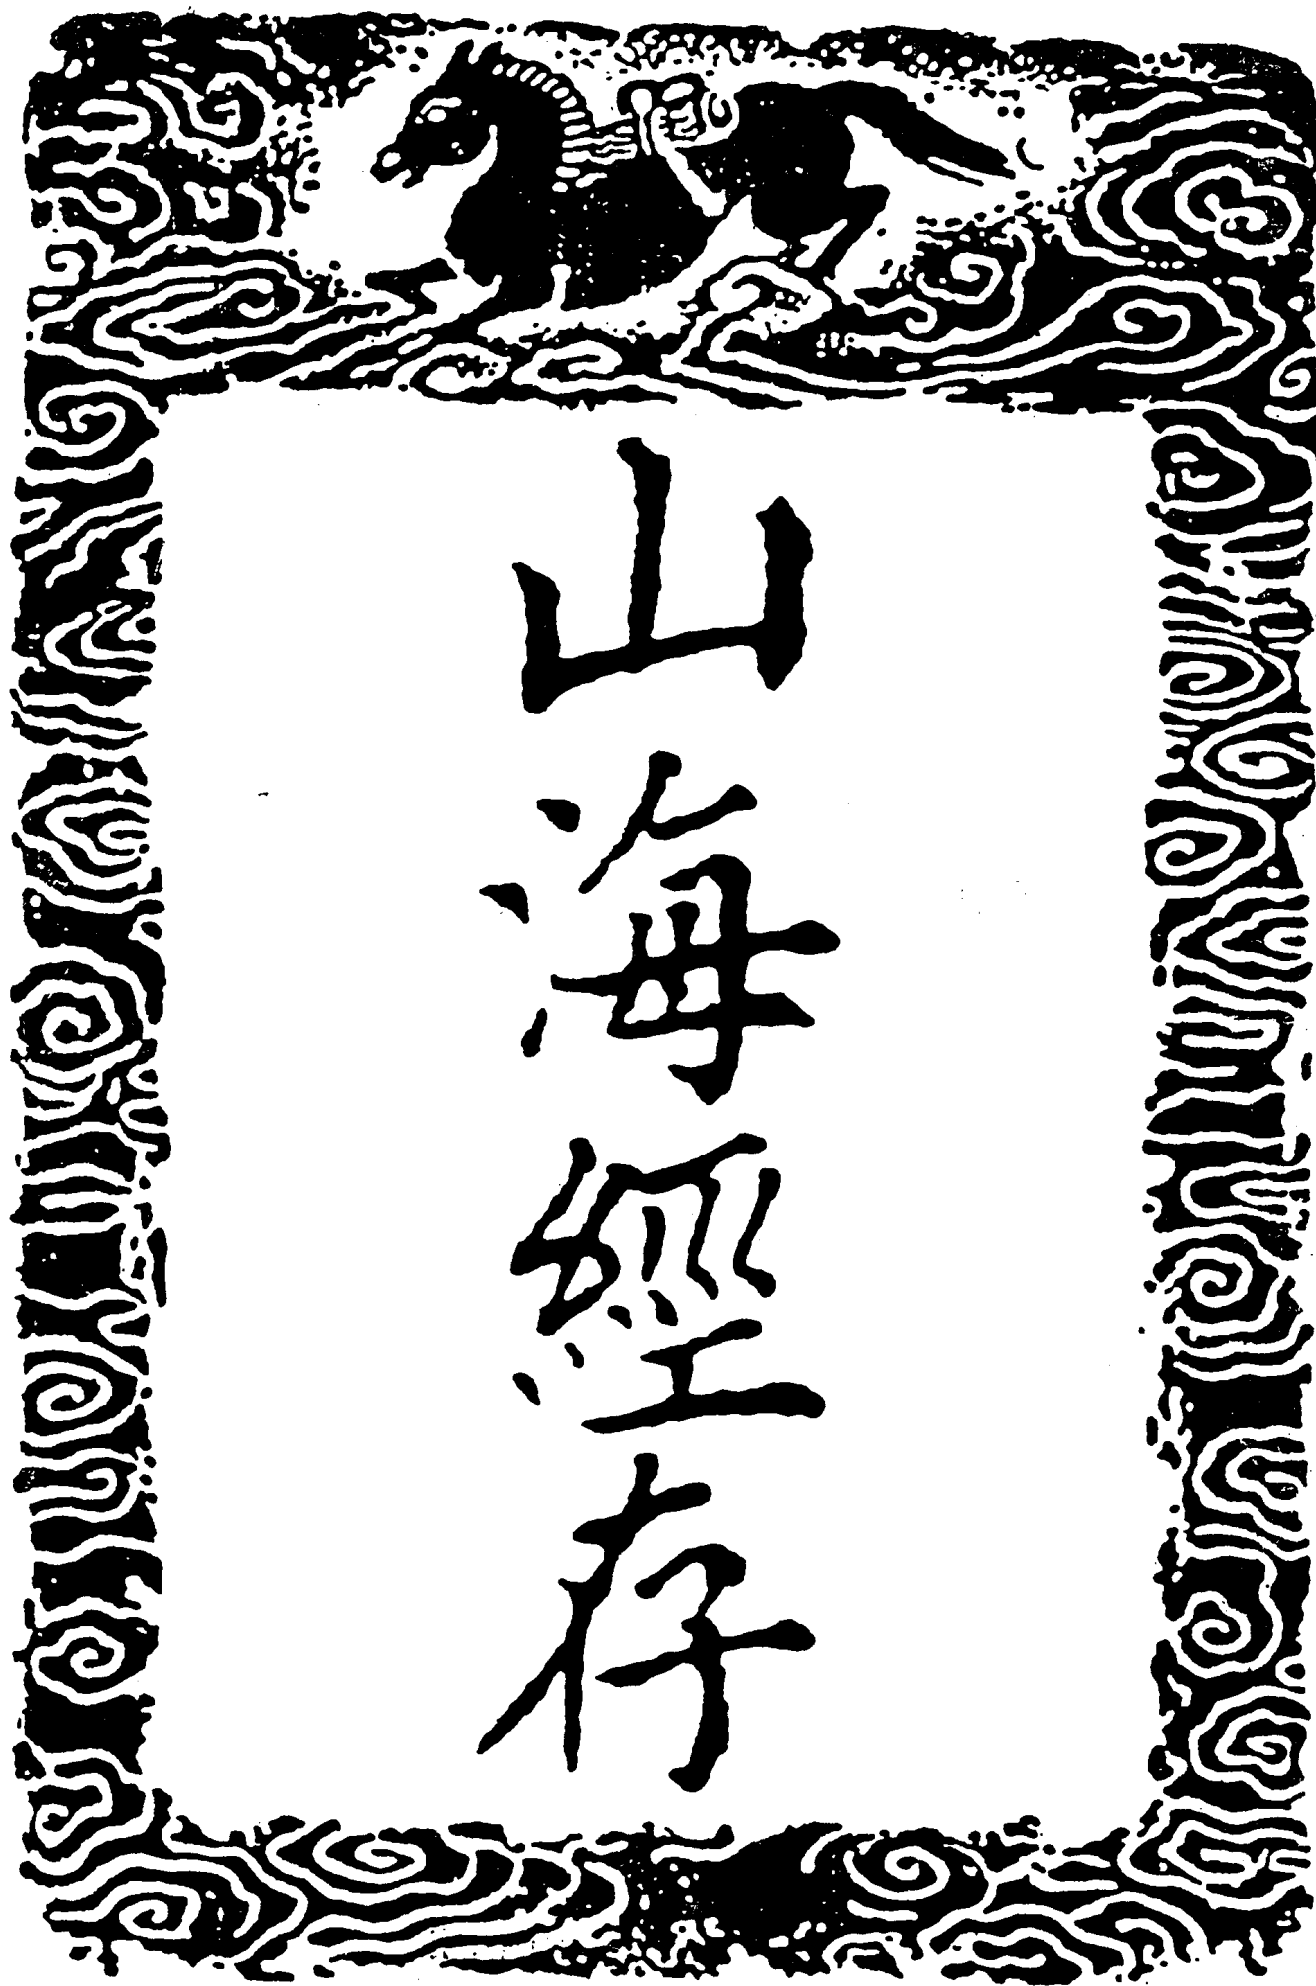 山海經存